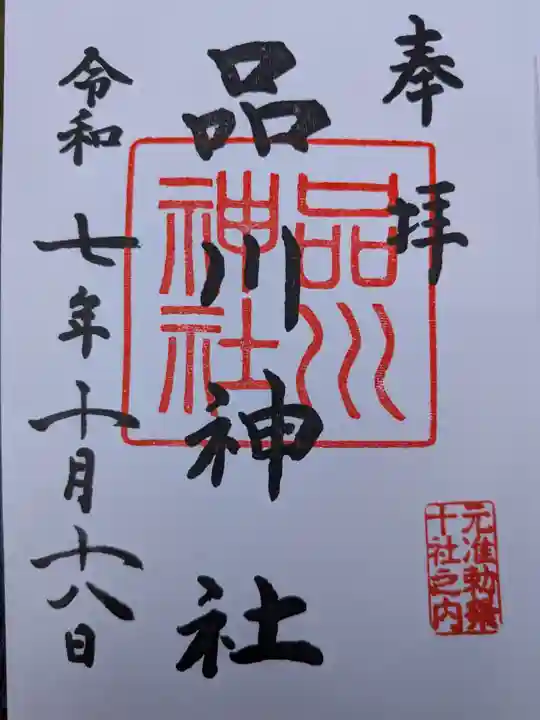 奉拝
品川神社
品川
神社
令和七年十月十八日
元准勅祭
十社之内